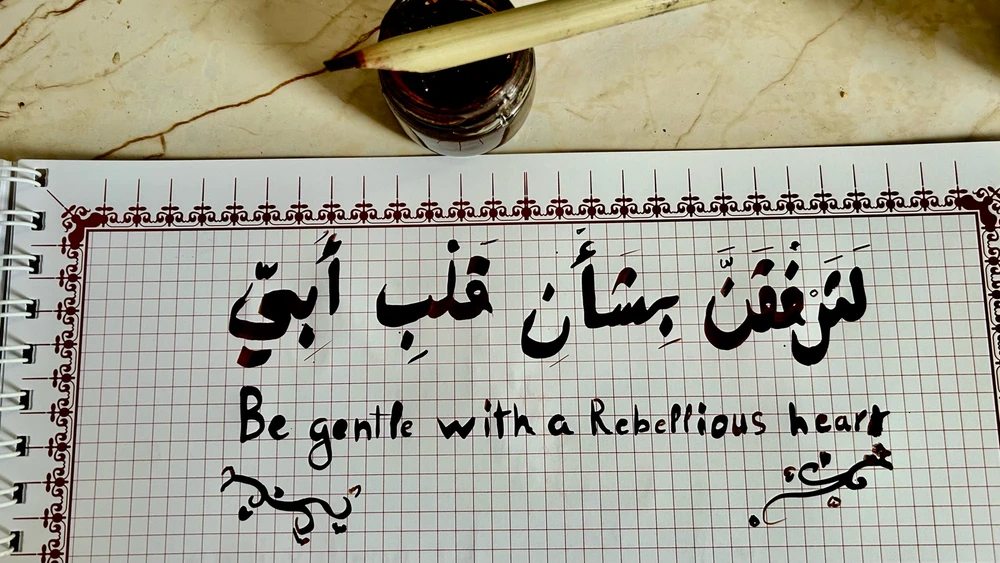 لَتَرْفَقَنَّ بِشَأْنِ قَلْبٍ أَبِيٍّ
Be gentle with a Rebellious heart